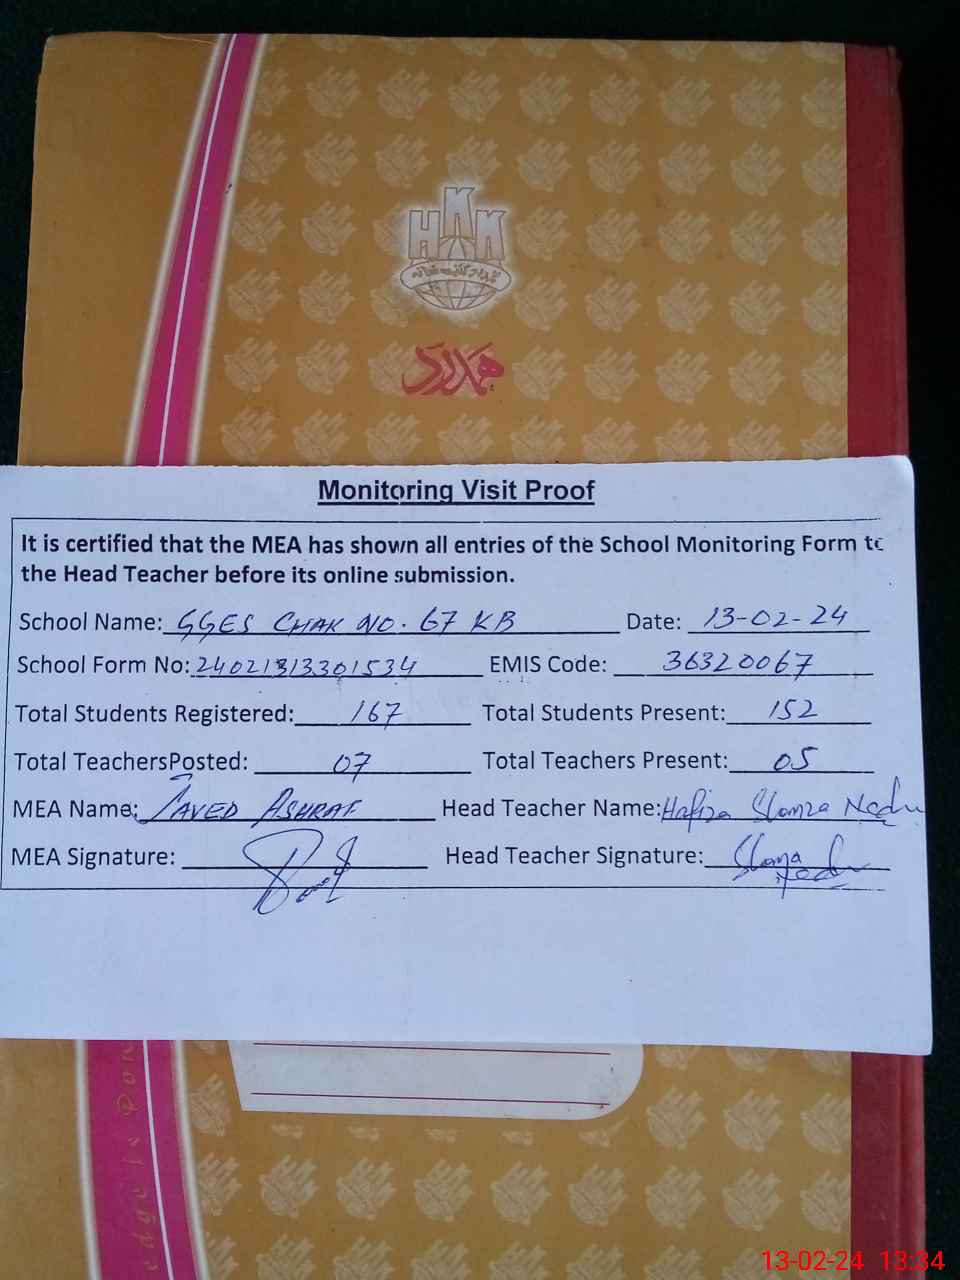 HKK
ہمدرد کتب خانہ
ہمدرد
Monitoring Visit Proof
It is certified that the MEA has shown all entries of the School Monitoring Form to
the Head Teacher before its online submission.
School Name: GGES CHAK NO. 67 KB Date: 13-02-24
School Form No: 24021313301534 EMIS Code: 36320067
Total Students Registered: 167 Total Students Present: 152
Total TeachersPosted: 07 Total Teachers Present: 05
MEA Name: JAVED ASHRAF Head Teacher Name: Hafiza
MEA Signature: Head Teacher Signature:
13-02-24 13:34